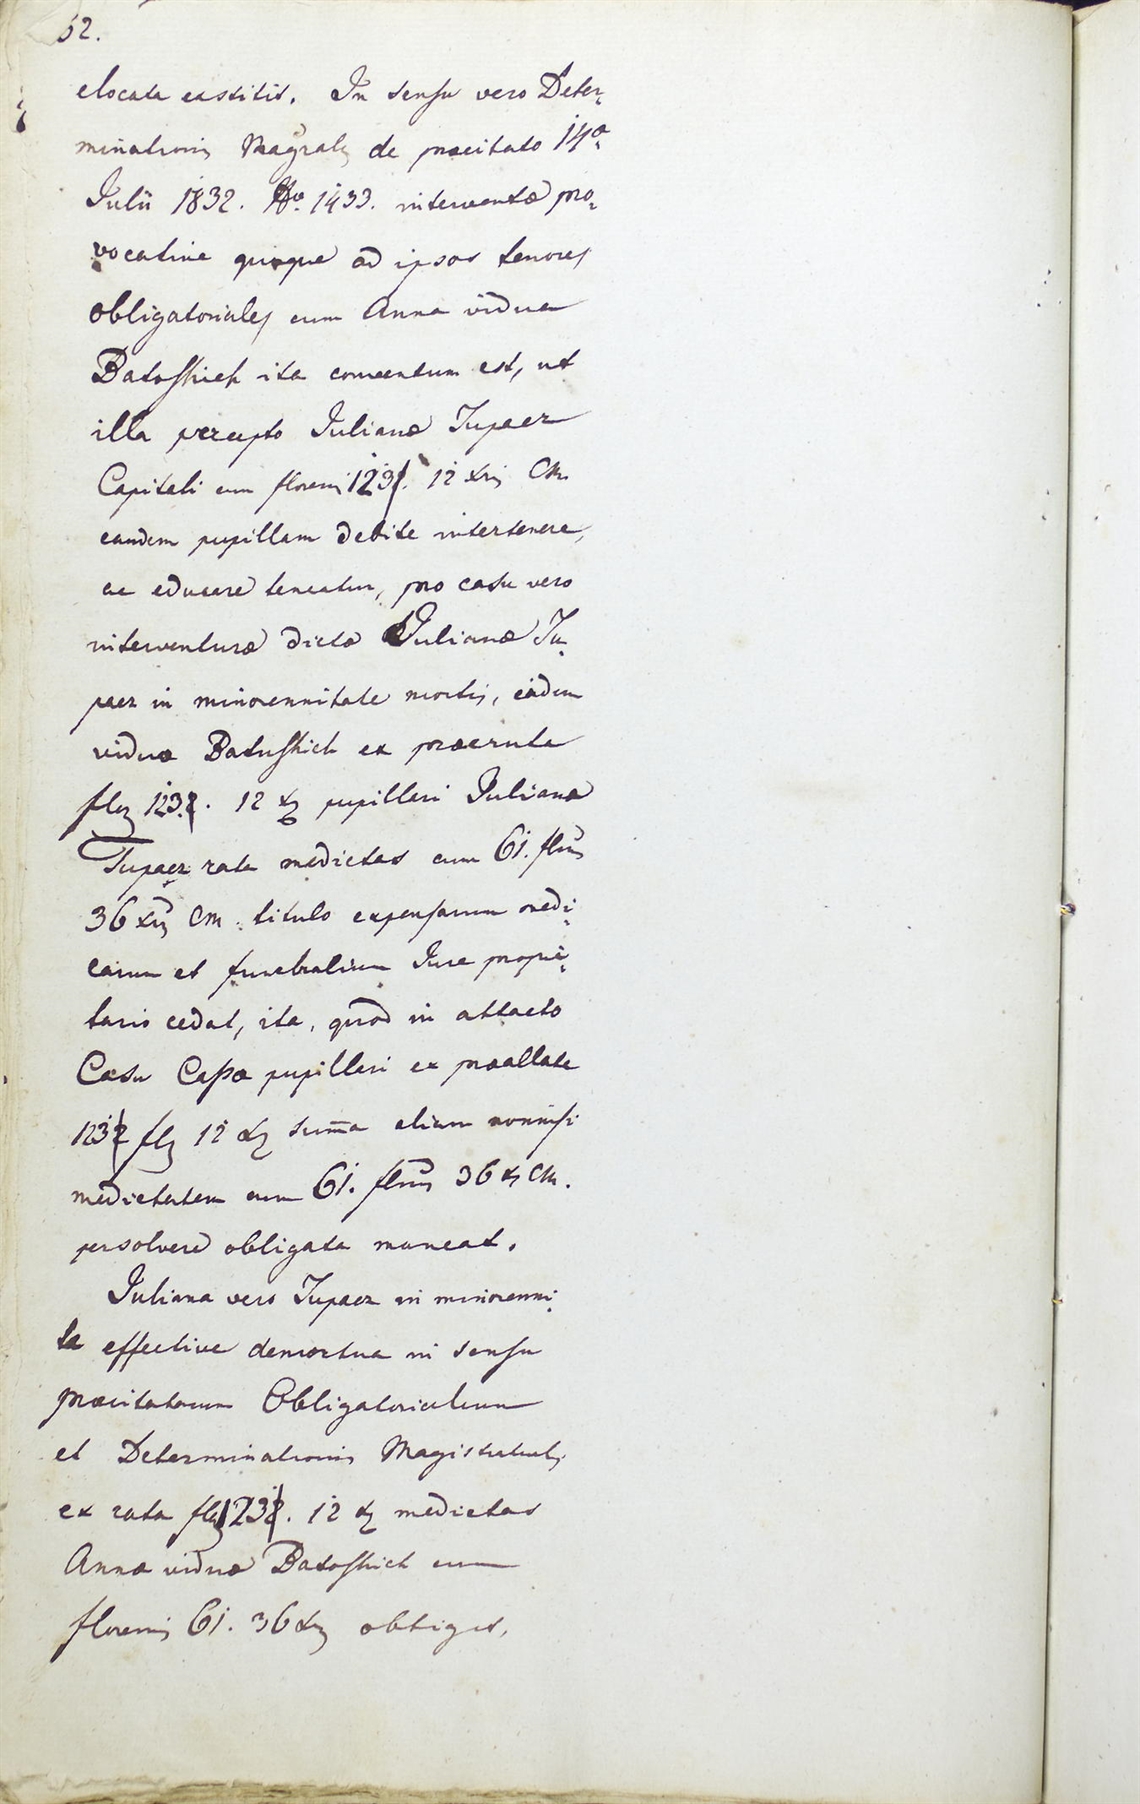 52.
elocata exstitit. In sensu vero Deter-
minationis Magralis de praecitato 14a
Julii 1832. No. 1433. interventae pro-
vocative quoque ad ipsos tenores
obligatoriales cum Anna vidua
Batosskich ita conventum est, ut
illa percepto Julianae Tupaez
Capitali cum florenis 123. 12 xris CM.
eandem pupillam debite intertenere,
ac educere teneatur, pro casu vero
interventurae dictae Julianae Tu-
paez in minorennitate mortis, eidem
viduae Batusskich ex praeruta
flnis 123. 12 x pupillari Juliana
Tupaez rata medietas cum 61. flnis
36 xris CM. titulo expensarum medi-
carum et funebralium Jure proprie-
tario cedat, ita, quod in attacto
Casu Cassa pupillari ex praeallata
123 fl 12 x summa etiam nonnisi
medietatem cum 61. flnis 36 x CM.
persolvere obligata maneat.
Juliana vero Tupaez in minorenni-
ta effective demortua in sensu
praecitatarum Obligatorialium
et Determinationis Magistratualis
ex rata fl 123. 12 x medietas
Annae viduae Batosskich cum
florenis 61. 36 xris obtiget,